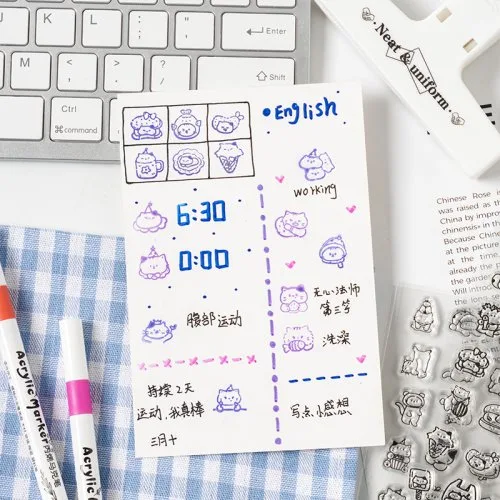 Enter
Shift
Ctrl
⌘command
Alt
Neat & uniform
English
working
6:30
0:00
腹部运动
无心法师
第三季
洗澡
持续2天
运动,我真棒
三月十
写点小感想
Chinese Rose
was raised as th
China by import
chinensis» in th
Because Chines
at the time,
already the p
garden
Will introduce
long
Acrylic Marker
Acrylic